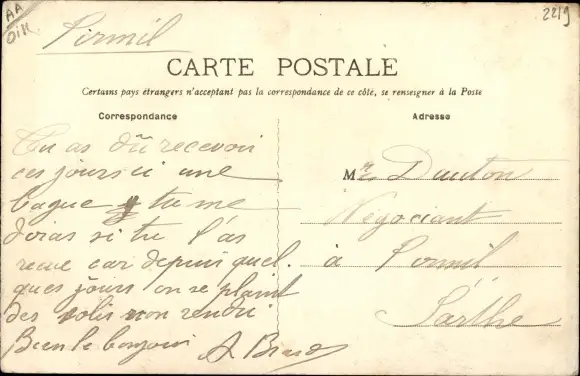 AA
Pirmil
2219
CARTE POSTALE
Certains pays étrangers n'acceptant pas la correspondance de ce côté, se renseigner à la Poste
Correspondance
Adresse
Tu as dû recevoir
ces jours ci une
bague tu me
diras si tu l'as
recue car depuis quel.
ques jours on se plaint
des colis non rendu
Bien le bonjour
Mr Dauton
Négociant
à Pirmil
Sarthe